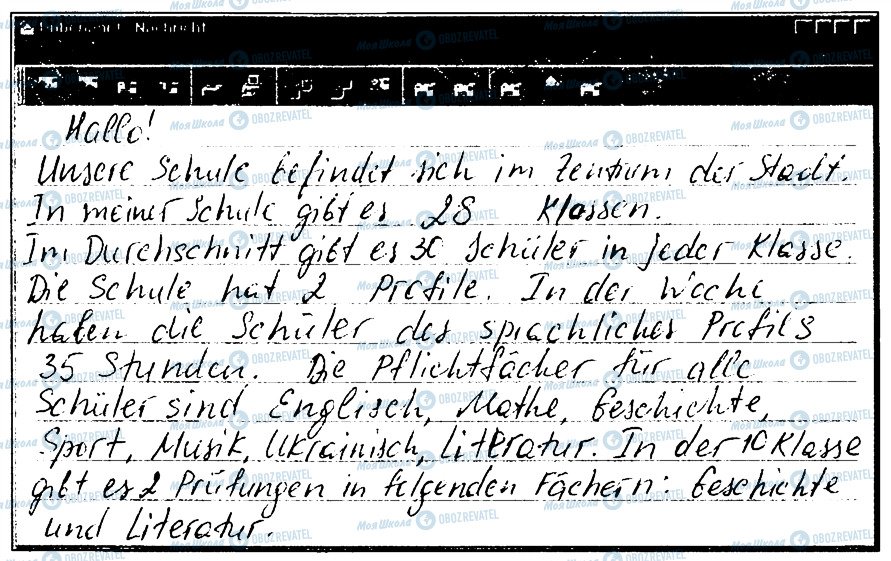 Unbenannt - Nachricht
Hallo!
Unsere Schule befindet sich im Zentrum der Stadt.
In meiner Schule gibt es 28 Klassen.
Im Durchschnitt gibt es 30 Schüler in jeder Klasse.
Die Schule hat 2 Profile. In der Woche
haben die Schüler des sprachliches Profils
35 Stunden. Die Pflichtfächer für alle
Schüler sind Englisch, Mathe, Geschichte,
Sport, Musik, Ukrainisch, Literatur. In der 10 Klasse
gibt es 2 Prüfungen in folgenden Fächern: Geschichte
und Literatur.